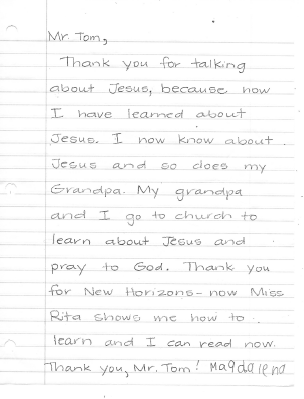 Mr. Tom,
Thank you for talking
about Jesus, because now
I have learned about
Jesus. I now know about
Jesus and so does my
Grandpa. My grandpa
and I go to church to
learn about Jesus and
pray to God. Thank you
for New Horizons - now Miss
Rita shows me how to
learn and I can read now.
Thank you, Mr. Tom! Magdalena